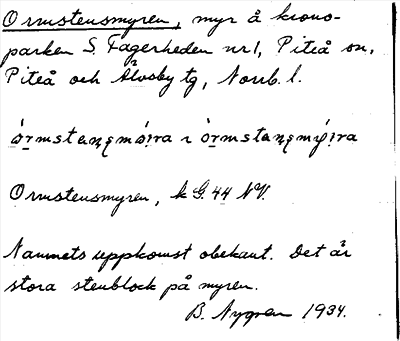 Ormstensmyren, myr å krono-
parken S. Fagerheden nr 1, Piteå sn,
Piteå och Älvsby tg, Norrb. l.
Ormstensmyren, k G. 44 NV.
Namnets uppkomst obekant. Det är
stora stenblock på myren.
B. Nygren 1934.